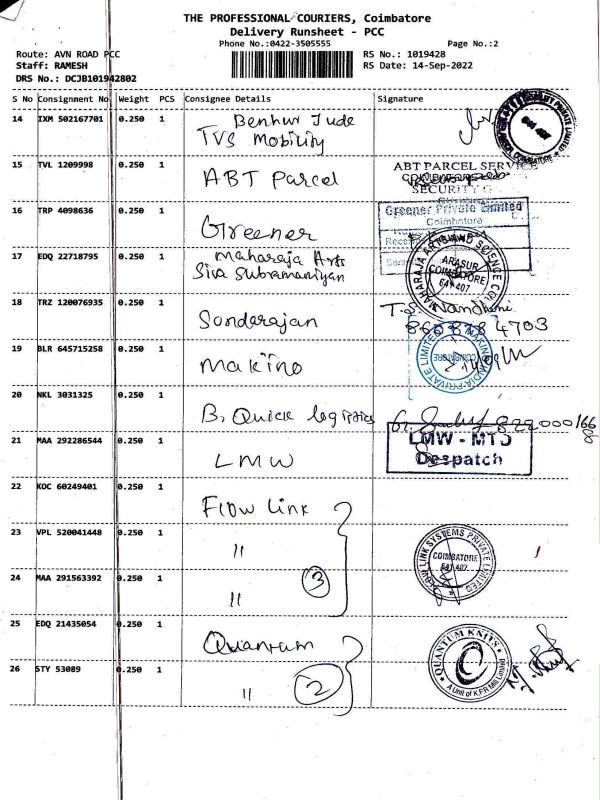 THE PROFESSIONAL COURIERS, Coimbatore
Delivery Runsheet - PCC
Phone No.:0422-3505555 Page No.:2
Route: AVN ROAD PCC RS No.: 1019428
Staff: RAMESH RS Date: 14-Sep-2022
DRS No.: DCJB101942802
S No Consignment No Weight PCS Consignee Details Signature
14 IXM 502167701 0.250 1 Benhur Jude
TVS Mobility
15 TVL 1209998 0.250 1 ABT Parcel ABT PARCEL SERVICE
SECURITY
16 TRP 4098636 0.250 1 Greener Greener Private Limited
Coimbatore
17 EDQ 22718795 0.250 1 Maharaja Arts
Siva Subramaniyan MAHARAJA ARTS AND SCIENCE COL
ARASUR
COIMBATORE
641 407
18 TRZ 120076935 0.250 1 Sondarajan T.S Nandhini
19 BLR 645715258 0.250 1 Makino MAKINO INDIA PRIVATE LIMITED
COIMBATORE
20 NKL 3031325 0.250 1 B. Quick logistics
21 MAA 292286544 0.250 1 LMW LMW - MTD
Despatch
22 KOC 60249401 0.250 1 Flow Link
23 VPL 520041448 0.250 1 " FLOW LINK SYSTEMS PRIVATE LIMITED
COIMBATORE
641 407
24 MAA 291563392 0.250 1 " 3
25 EDQ 21435054 0.250 1 Quantum QUANTUM KNITS
A Unit of K.P.R Mill Limited
26 STY 53089 0.250 1 " 2